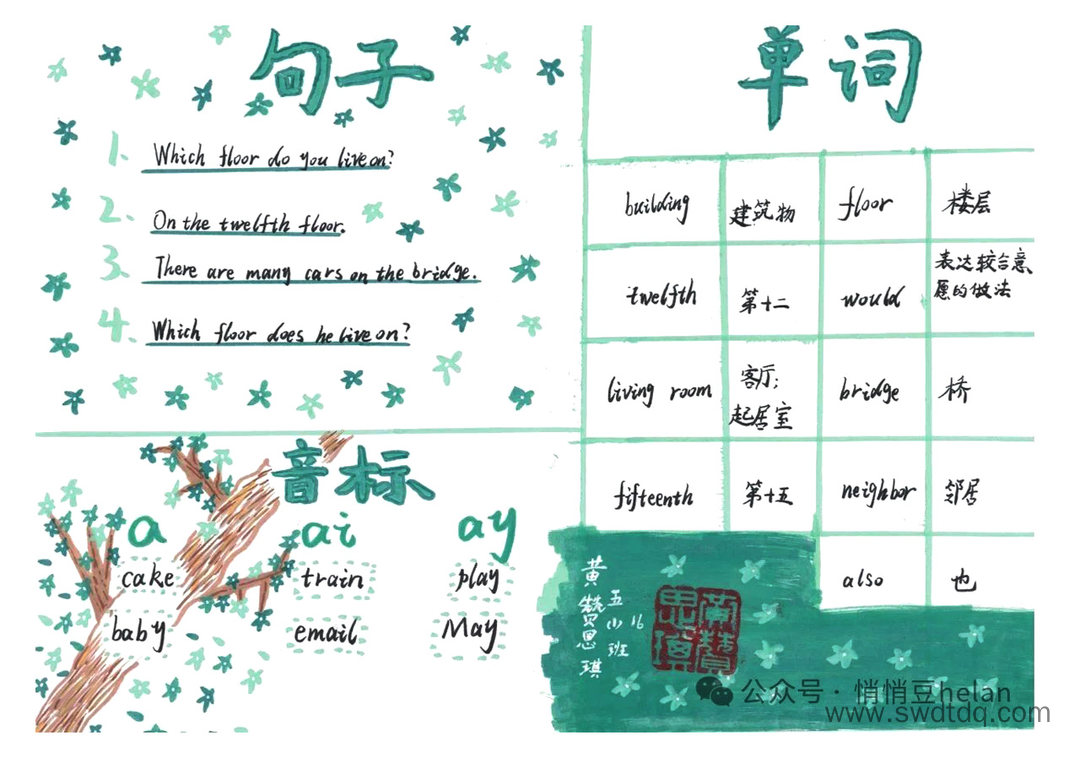 句子
1. Which floor do you live on?
2. On the twelfth floor.
3. There are many cars on the bridge.
4. Which floor does he live on?
单词
building 建筑物 floor 楼层
twelfth 第十二 would 表达较合意愿的做法
living room 客厅; 起居室 bridge 桥
fifteenth 第十五 neighbor 邻居
also 也
音标
a ai ay
cake train play
baby email May
黄赞思琪
五小班
16
公众号·悄悄豆helan
www.swdtdq.com